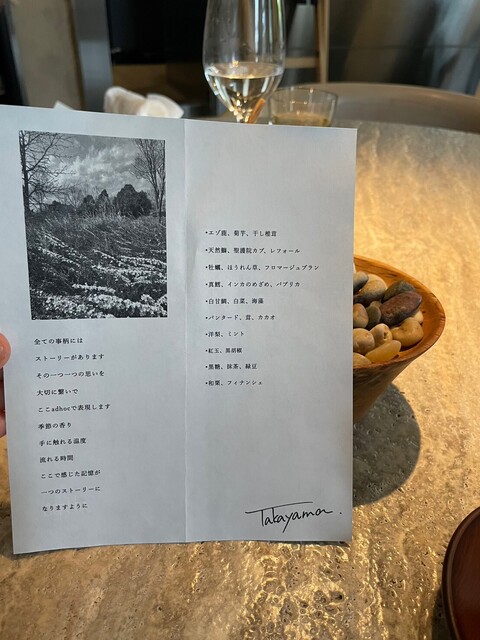 全ての事柄には
ストーリーがあります
その一つ一つの思いを
大切に繋いで
ここadhocで表現します
季節の香り
手に触れる温度
流れる時間
ここで感じた記憶が
一つのストーリーに
なりますように
•エゾ鹿、菊芋、干し椎茸
•天然鰤、聖護院カブ、レフォール
•牡蠣、ほうれん草、フロマージュブラン
•真鱈、インカのめざめ、パプリカ
•白甘鯛、白菜、海藻
•パンタード、茸、カカオ
•洋梨、ミント
•紅玉、黒胡椒
•黒糖、抹茶、緑豆
•和栗、フィナンシェ
Takayama.